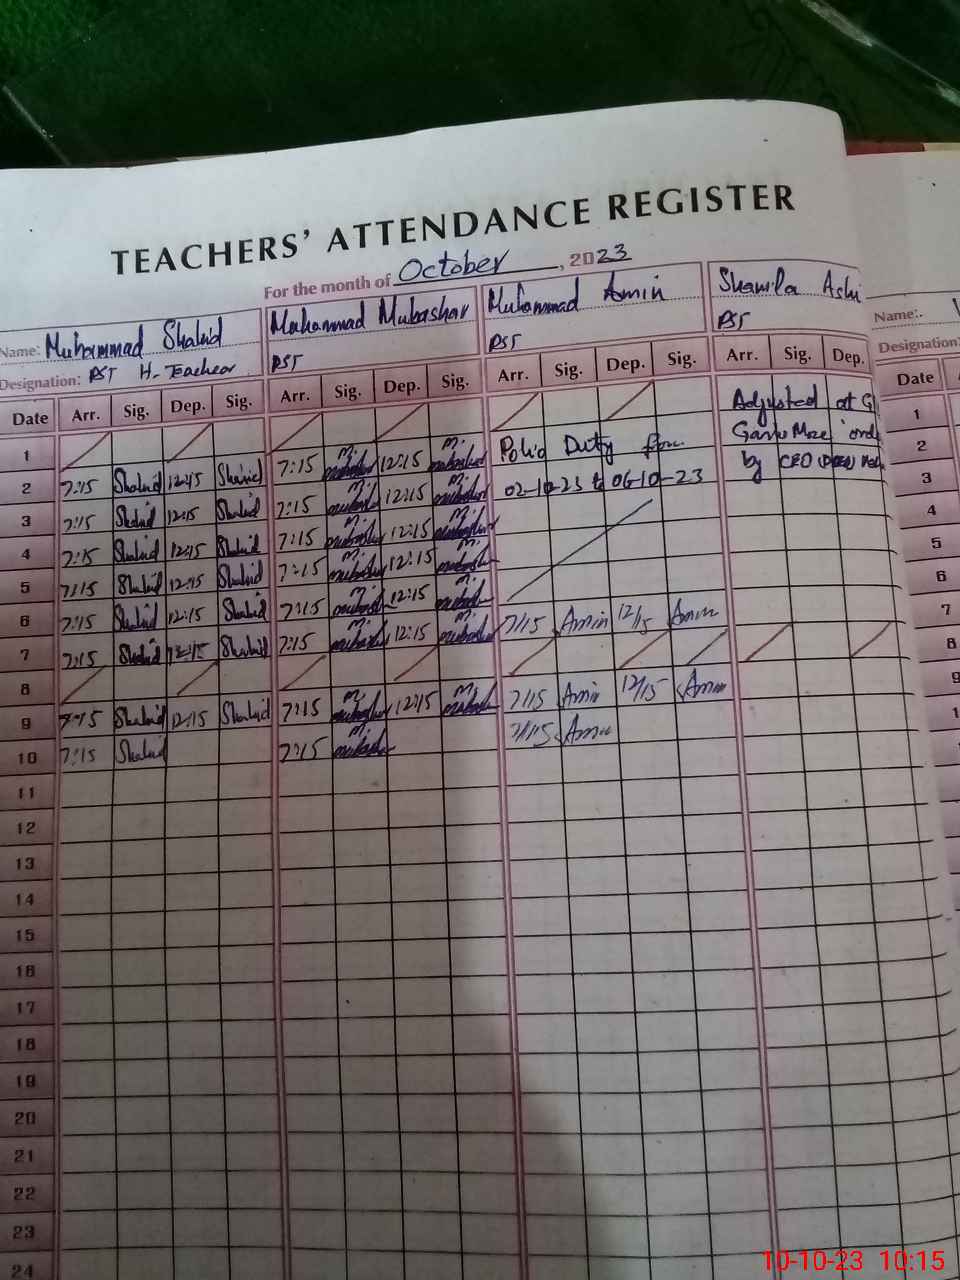 TEACHERS' ATTENDANCE REGISTER
For the month of October, 2023
Name: Muhammad Shahid Muhammad Mubashar Muhammad Amin Shamila Name:.
Designation: PST H-Teacher PST PST PST Designation:
Date Arr. Sig. Dep. Sig. Arr. Sig. Dep. Sig. Arr. Sig. Dep. Sig. Arr. Sig. Dep. Date
1 Adjusted at 1
2 7:15 Shahid 12:15 Shahid 7:15 M. mubashar 12:15 M. mubashar Polio Duty from 2
3 7:15 Shahid 12:15 Shahid 7:15 M. mubashar 12:15 M. mubashar 02-10-23 to 06-10-23 by CEO 3
4 7:15 Shahid 12:15 Shahid 7:15 M. mubashar 12:15 M. mubashar 4
5 7:15 Shahid 12:15 Shahid 7:15 M. mubashar 12:15 M. mubashar 5
6 7:15 Shahid 12:15 Shahid 7:15 M. mubashar 12:15 M. mubashar 6
7 7:15 Shahid 12:15 Shahid 7:15 M. mubashar 12:15 M. mubashar 7/15 Amin 12/15 Amin 7
8 8
9 7:15 Shahid 12:15 Shahid 7:15 M. mubashar 12:15 M. mubashar 7/15 Amin 12/15 Amin 9
10 7:15 Shahid 7:15 M. mubashar 7/15 Amin
11
12
13
14
15
16
17
18
19
20
21
22
23
24
10-10-23 10:15